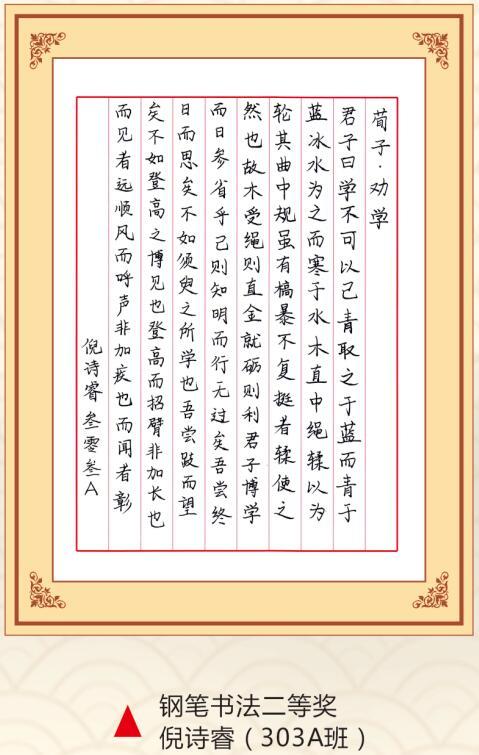 荀子·劝学
君子曰学不可以己青取之于蓝而青于
蓝冰水为之而寒于水木直中绳𫐓以为
轮其曲中规虽有槁暴不复挺者𫐓使之
然也故木受绳则直金就砺则利君子博学
而日参省乎己则知明而行无过矣吾尝终
日而思矣不如须臾之所学也吾尝跂而望
矣不如登高之博见也登高而招臂非加长也
而见者远顺风而呼声非加疾也而闻者彰
倪诗睿叁零叁A
钢笔书法二等奖
倪诗睿（303A班）